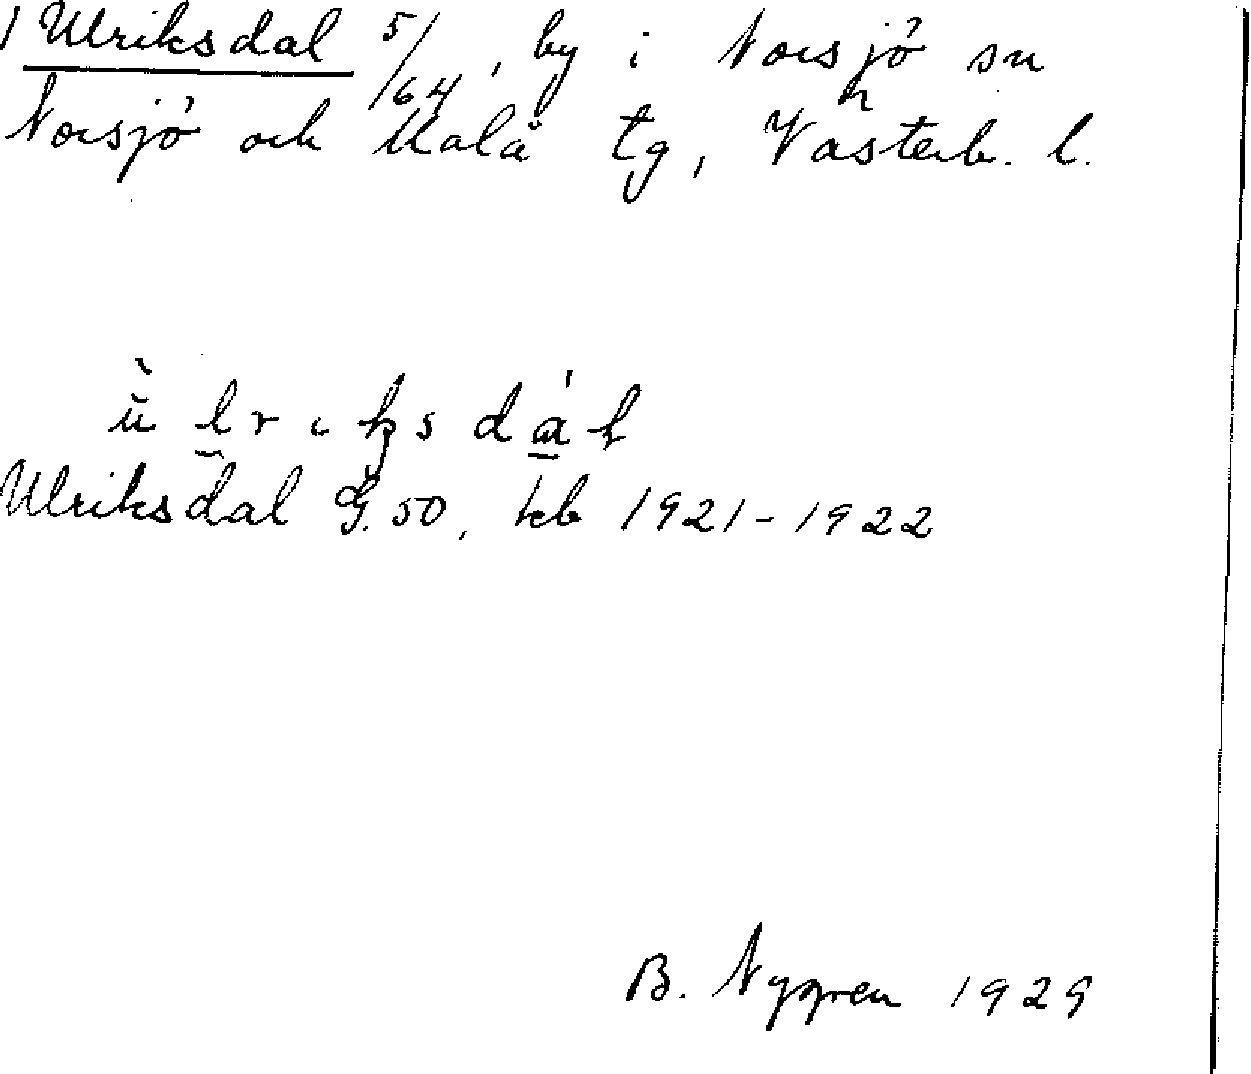 Ulriksdal 5/64, by i Norsjö sn
Norsjö och Malå tg, Västerb. l.
Ulriksdal G. 50, kb 1921-1922
B. Nygren 1929